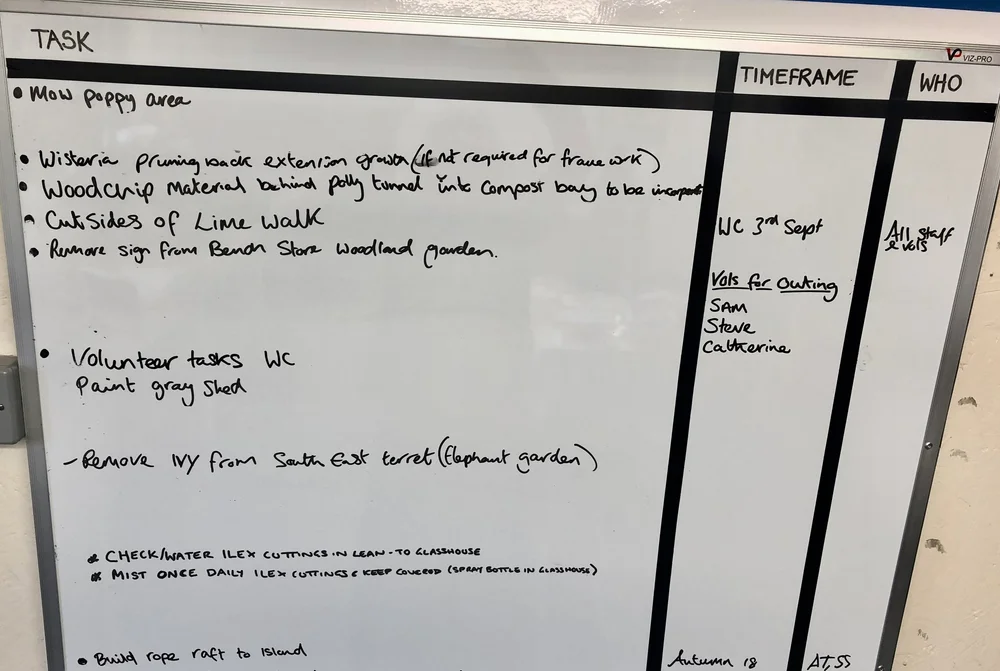 TASK
TIMEFRAME
WHO
VIZ-PRO
• Mow poppy area
• Wisteria pruning back extension growth (if not required for frame work)
• Woodchip material behind polly tunnel into compost bay to be incorporat
• Cut sides of Lime Walk
WC 3rd Sept
All staff
& vols
• Remove sign from Bench Store woodland garden.
Vols for Outing
SAM
Steve
Catherine
• Volunteer tasks WC
Paint gray shed
- Remove IVY from South East terret (Elephant garden)
* CHECK/WATER ILEX CUTTINGS IN LEAN-TO GLASSHOUSE
* MIST ONCE DAILY ILEX CUTTINGS & KEEP COVERED (SPRAY BOTTLE IN GLASSHOUSE)
• Build rope raft to Island
Autumn 18
AT, SS